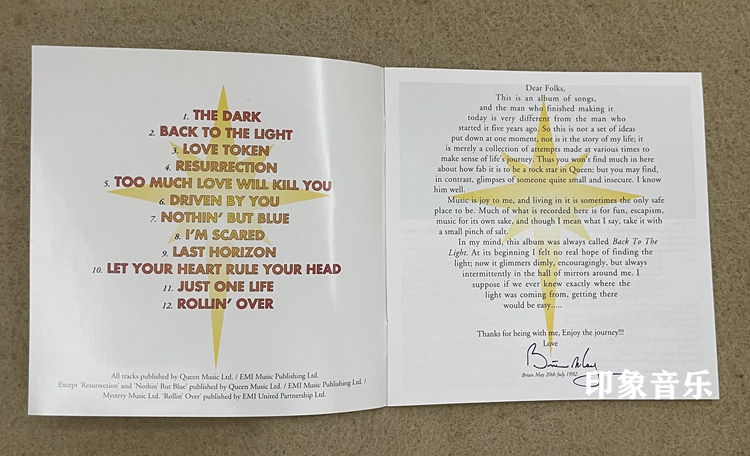 1. THE DARK
2. BACK TO THE LIGHT
3. LOVE TOKEN
4. RESURRECTION
5. TOO MUCH LOVE WILL KILL YOU
6. DRIVEN BY YOU
7. NOTHIN' BUT BLUE
8. I'M SCARED
9. LAST HORIZON
10. LET YOUR HEART RULE YOUR HEAD
11. JUST ONE LIFE
12. ROLLIN' OVER
All tracks published by Queen Music Ltd. / EMI Music Publishing Ltd.
Except 'Resurrection' and 'Nothin' But Blue' published by Queen Music Ltd. / EMI Music Publishing Ltd. /
Mystery Music Ltd. 'Rollin' Over' published by EMI United Partnership Ltd.
Dear Folks,
This is an album of songs,
and the man who finished making it
today is very different from the man who
started it five years ago. So this is not a set of ideas
put down at one moment, nor is it the story of my life; it
is merely a collection of attempts made at various times to
make sense of life's journey. Thus you won't find much in here
about how fab it is to be a rock star in Queen; but you may find,
in contrast, glimpses of someone quite small and insecure. I know
him well.
Music is joy to me, and living in it is sometimes the only safe
place to be. Much of what is recorded here is for fun, escapism,
music for its own sake, and though I mean what I say, take it with
a small pinch of salt.
In my mind, this album was always called Back To The
Light. At its beginning I felt no real hope of finding the
light; now it glimmers dimly, encouragingly, but always
intermittently in the hall of mirrors around me. I
suppose if we ever knew exactly where the
light was coming from, getting there
would be easy.....
Thanks for being with me, Enjoy the journey!!!
Love
Brian May
Brian May 20th July 1992
印象音乐